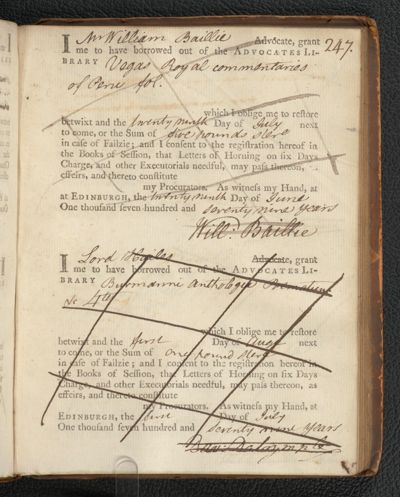 247.
I Mr William Baillie Advocate, grant
me to have borrowed out of the ADVOCATES LI-
BRARY Vegas Royal commentaries
of Peru fol.
which I oblige me to restore
betwixt and the twenty ninth Day of July next
to come, or the Sum of five pounds Sterg
in case of Failzie; and I consent to the registration hereof in
the Books of Session, that Letters of Horning on six Days
Charge, and other Executorials needful, may pass thereon, as
effeirs, and thereto constitute
my Procurators. As witness my Hand, at
at EDINBURGH, the twenty ninth Day of June
One thousand seven hundred and seventy nine years
Willm. Baillie
I Lord Hailes Advocate, grant
me to have borrowed out of the ADVOCATES LI-
BRARY Burmanni Anthologia
4to
which I oblige me to restore
betwixt and the first Day of Augt next
to come, or the Sum of One pound Sterg
in case of Failzie; and I consent to the registration hereof in
the Books of Session, that Letters of Horning on six Days
Charge, and other Executorials needful, may pass thereon, as
effeirs, and thereto constitute
my Procurators. As witness my Hand, at
EDINBURGH, the first Day of July
One thousand seven hundred and seventy nine years
Dav: Dalrymple